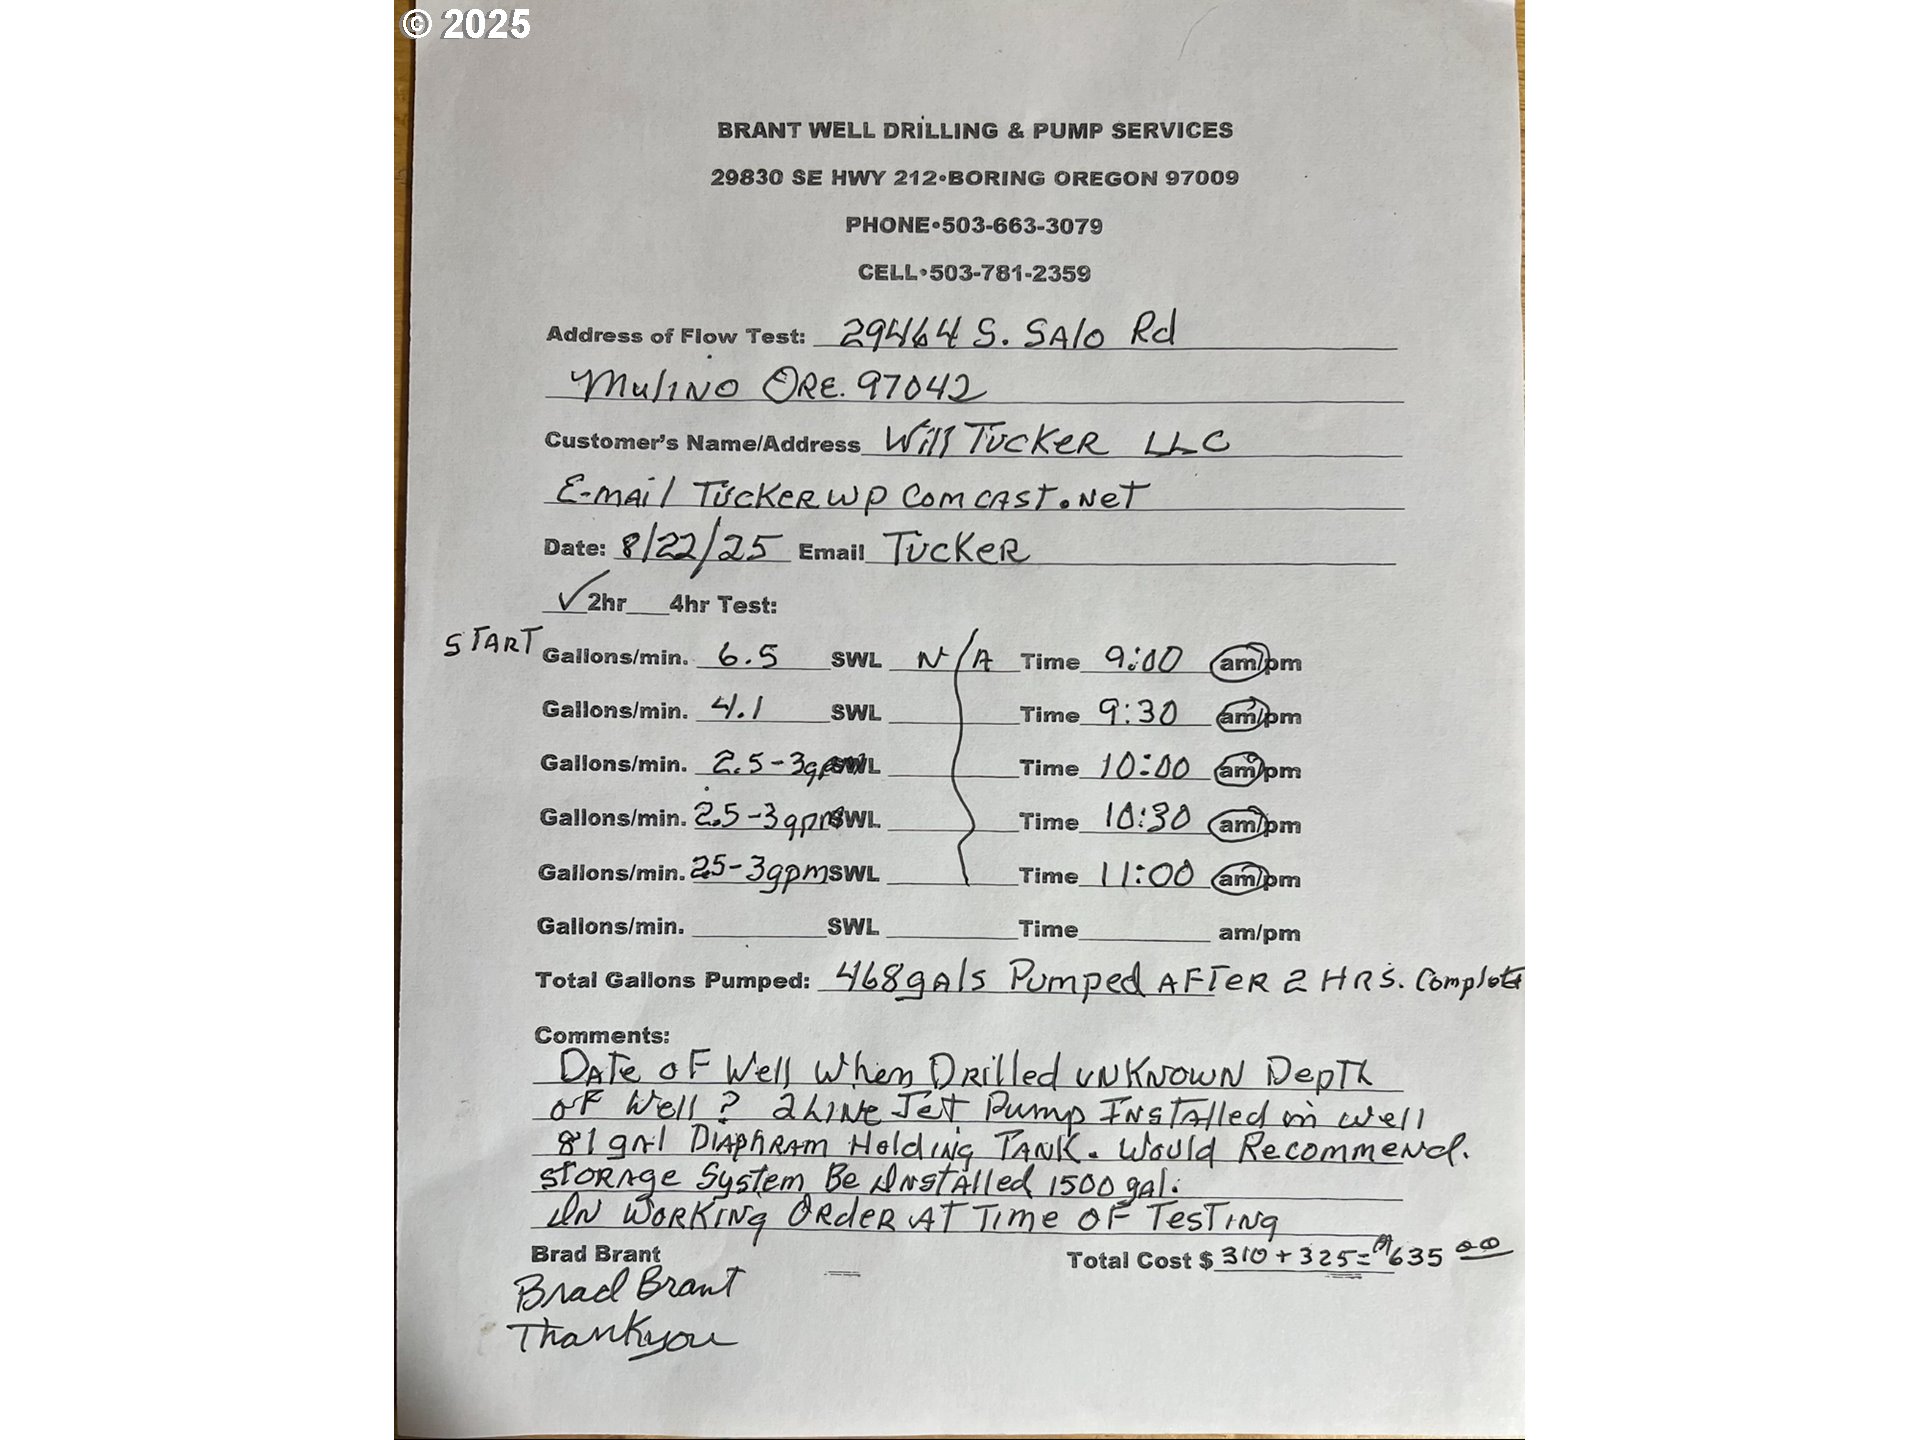 © 2025
BRANT WELL DRILLING & PUMP SERVICES
29830 SE HWY 212•BORING OREGON 97009
PHONE•503-663-3079
CELL•503-781-2359
Address of Flow Test: 29464 S. SALO Rd
MULINO ORE. 97042
Customer's Name/Address Will TUCKER LLC
E-MAIL TUCKERWP COMCAST.NET
Date: 8/22/25 Email TUCKER
✓ 2hr 4hr Test:
START Gallons/min. 6.5 SWL N/A Time 9:00 am/pm
Gallons/min. 4.1 SWL Time 9:30 am/pm
Gallons/min. 2.5-3gpm SWL Time 10:00 am/pm
Gallons/min. 2.5-3gpm SWL Time 10:30 am/pm
Gallons/min. 25-3gpm SWL Time 11:00 am/pm
Gallons/min. SWL Time am/pm
Total Gallons Pumped: 468gals Pumped AFTER 2 HRS. Completed
Comments:
DATE OF Well When Drilled UNKNOWN Depth
OF Well? 2 LINE JET Pump INSTAlled in well
81 gal DIAPhRAM Holding TANK. Would Recommend.
STORAGE System Be INSTAlled 1500 gal.
IN WORKING ORDER AT Time OF TESTING
Brad Brant Total Cost $ 310 + 325 = 635 00
Brad Brant
Thank you